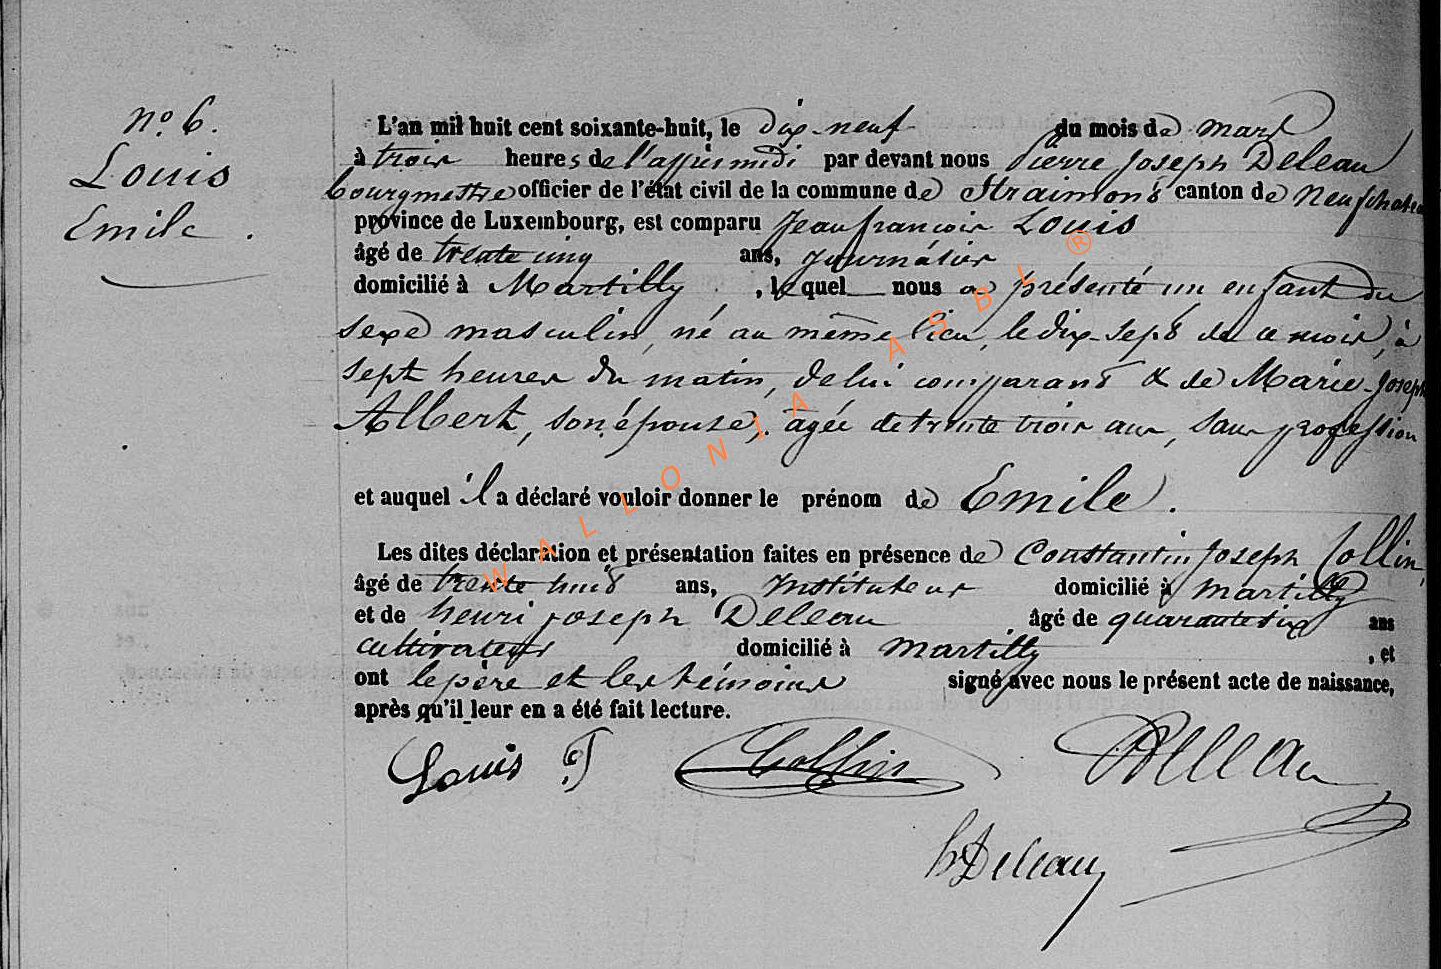 n.º 6.
Louis
Emile.
L'an mil huit cent soixante-huit, le dix-neuf du mois de mars
à trois heures de l'après midi par devant nous Pierre Joseph Deleau
bourgmestre officier de l'état civil de la commune de Straimont canton de Neufchateau
province de Luxembourg, est comparu Jean françois Louis
âgé de trente cinq ans, journalier
domicilié à Martilly, lequel nous a présenté un enfant du
sexe masculin, né au même lieu, le dix-sept de ce mois, à
sept heures du matin, de lui comparant & de Marie-Joseph
Albert, son épouse, âgée de trente trois ans, sans profession
et auquel il a déclaré vouloir donner le prénom de Emile.
Les dites déclaration et présentation faites en présence de Constantin Joseph Collin,
âgé de trente huit ans, instituteur domicilié à Martilly
et de henri joseph Deleau âgé de quarante six ans
cultivateur domicilié à Martilly, et
ont le père et les témoins signé avec nous le présent acte de naissance,
après qu'il leur en a été fait lecture.
Louis J
Collin
Deleau
h Deleau
WALLONIA ASBL ®